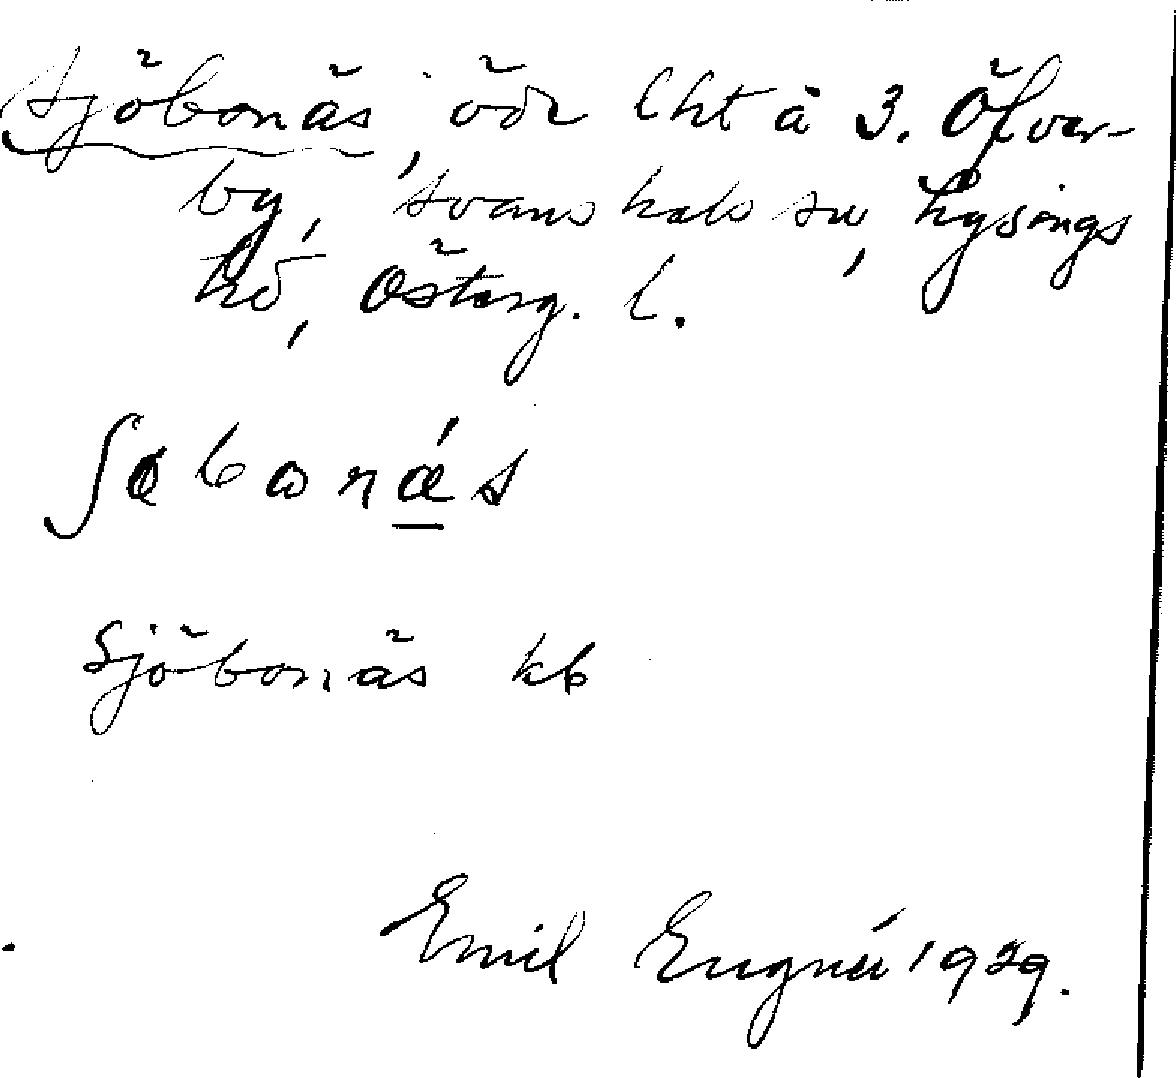 Sjöbonäs, öde lht å 3. Öfver-
by, Svanhals sn, Lysings
hd, Österg. l.
ʃøbonǽs
Sjöbonäs kb
Emil 1929.